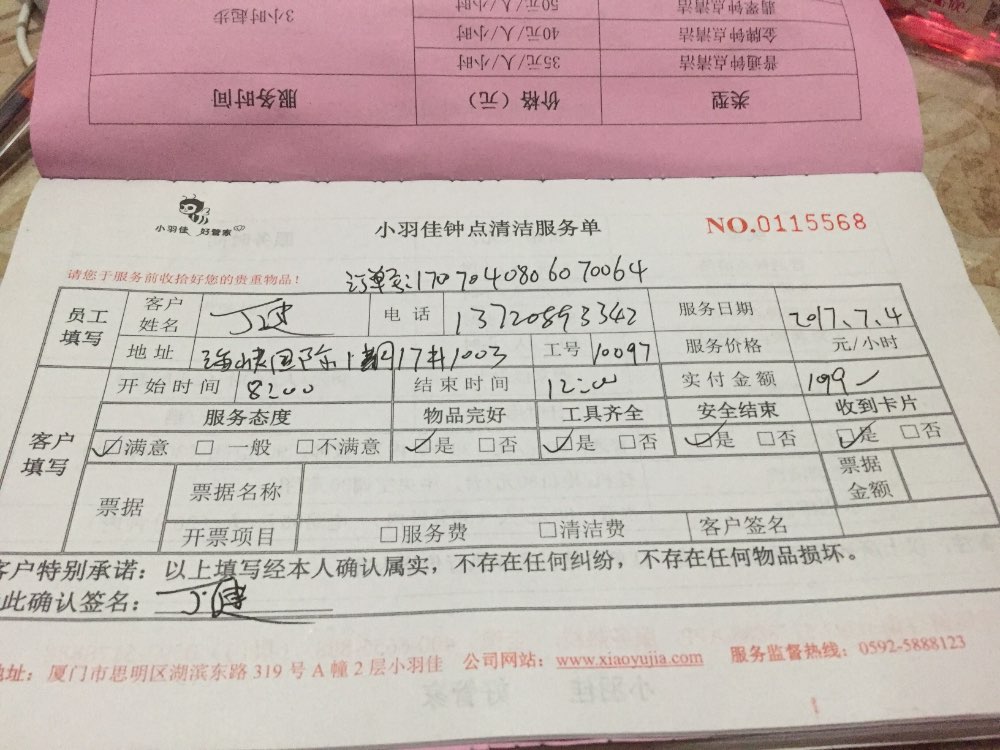 3小时起步
50元/人/小时 翡翠钟点清洁
40元/人/小时 金牌钟点清洁
35元/人/小时 普通钟点清洁
服务时间 价格（元） 类型
小羽佳 好管家
小羽佳钟点清洁服务单
NO.0115568
请您于服务前收拾好您的贵重物品！
订单号:1707040806070064
员工填写 客户姓名 丁健 电话 13720893342 服务日期 2017、7、4
地址 国际 17#1003 工号 10097 服务价格 元/小时
客户填写 开始时间 8:00 结束时间 12:00 实付金额 199
服务态度 物品完好 工具齐全 安全结束 收到卡片
☑满意 □一般 □不满意 ☑是 □否 ☑是 □否 ☑是 □否 ☑是 □否
票据 票据名称 票据金额
开票项目 □服务费 □清洁费 客户签名
客户特别承诺：以上填写经本人确认属实，不存在任何纠纷，不存在任何物品损坏。
此确认签名：丁健
地址：厦门市思明区湖滨东路 319 号 A 幢 2 层小羽佳 公司网站：www.xiaoyujia.com 服务监督热线：0592-5888123